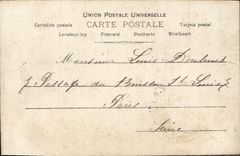 UNION POSTALE UNIVERSELLE
CARTE POSTALE
Cartolina postale
Tarjeta postal
Levelezö-lap
Postcard
Postkarte
Briefkaart
Monsieur Louis
7 Passage du Buisson St Louis 7
Paris
Seine